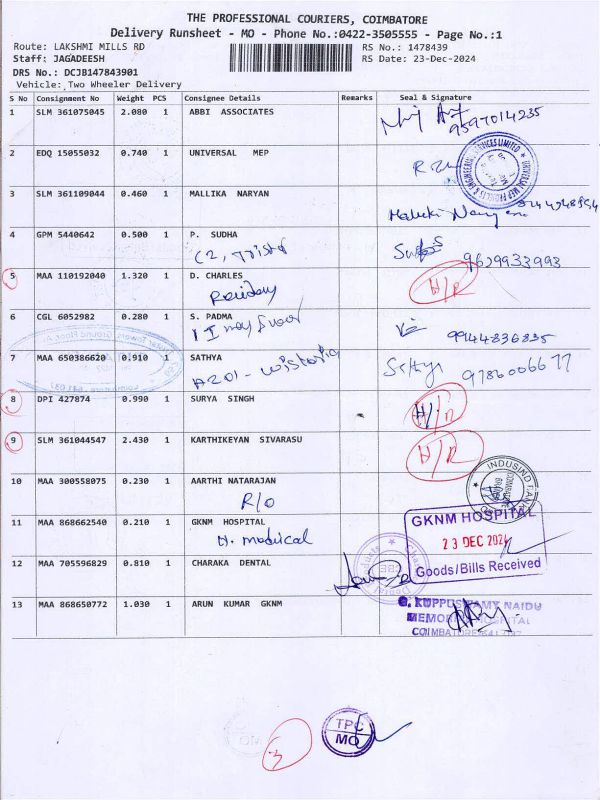 THE PROFESSIONAL COURIERS, COIMBATORE
Delivery Runsheet - MO - Phone No.:0422-3505555 - Page No.:1
Route: LAKSHMI MILLS RD RS No.: 1478439
Staff: JAGADEESH RS Date: 23-Dec-2024
DRS No.: DCJB147843901
Vehicle: Two Wheeler Delivery
S No Consignment No Weight PCS Consignee Details Remarks Seal & Signature
1 SLM 361075045 2.080 1 ABBI ASSOCIATES
9597014235
2 EDQ 15055032 0.740 1 UNIVERSAL MEP
3 SLM 361109044 0.460 1 MALLIKA NARYAN
4 GPM 5440642 0.500 1 P. SUDHA
9629933993
5 MAA 110192040 1.320 1 D. CHARLES H/R
6 CGL 6052982 0.280 1 S. PADMA
9944836835
7 MAA 650386620 0.910 1 SATHYA
Sathya 9786006677
8 DPI 427874 0.990 1 SURYA SINGH H/R
9 SLM 361044547 2.430 1 KARTHIKEYAN SIVARASU H/R
10 MAA 300558075 0.230 1 AARTHI NATARAJAN
R/O
INDUSIND BANK
11 MAA 868662540 0.210 1 GKNM HOSPITAL
GKNM HOSPITAL
23 DEC 2024
Goods/Bills Received
12 MAA 705596829 0.810 1 CHARAKA DENTAL
13 MAA 868650772 1.030 1 ARUN KUMAR GKNM
G. KUPPUSWAMY NAIDU
MEMORIAL HOSPITAL
COIMBATORE
3
TPC
MO